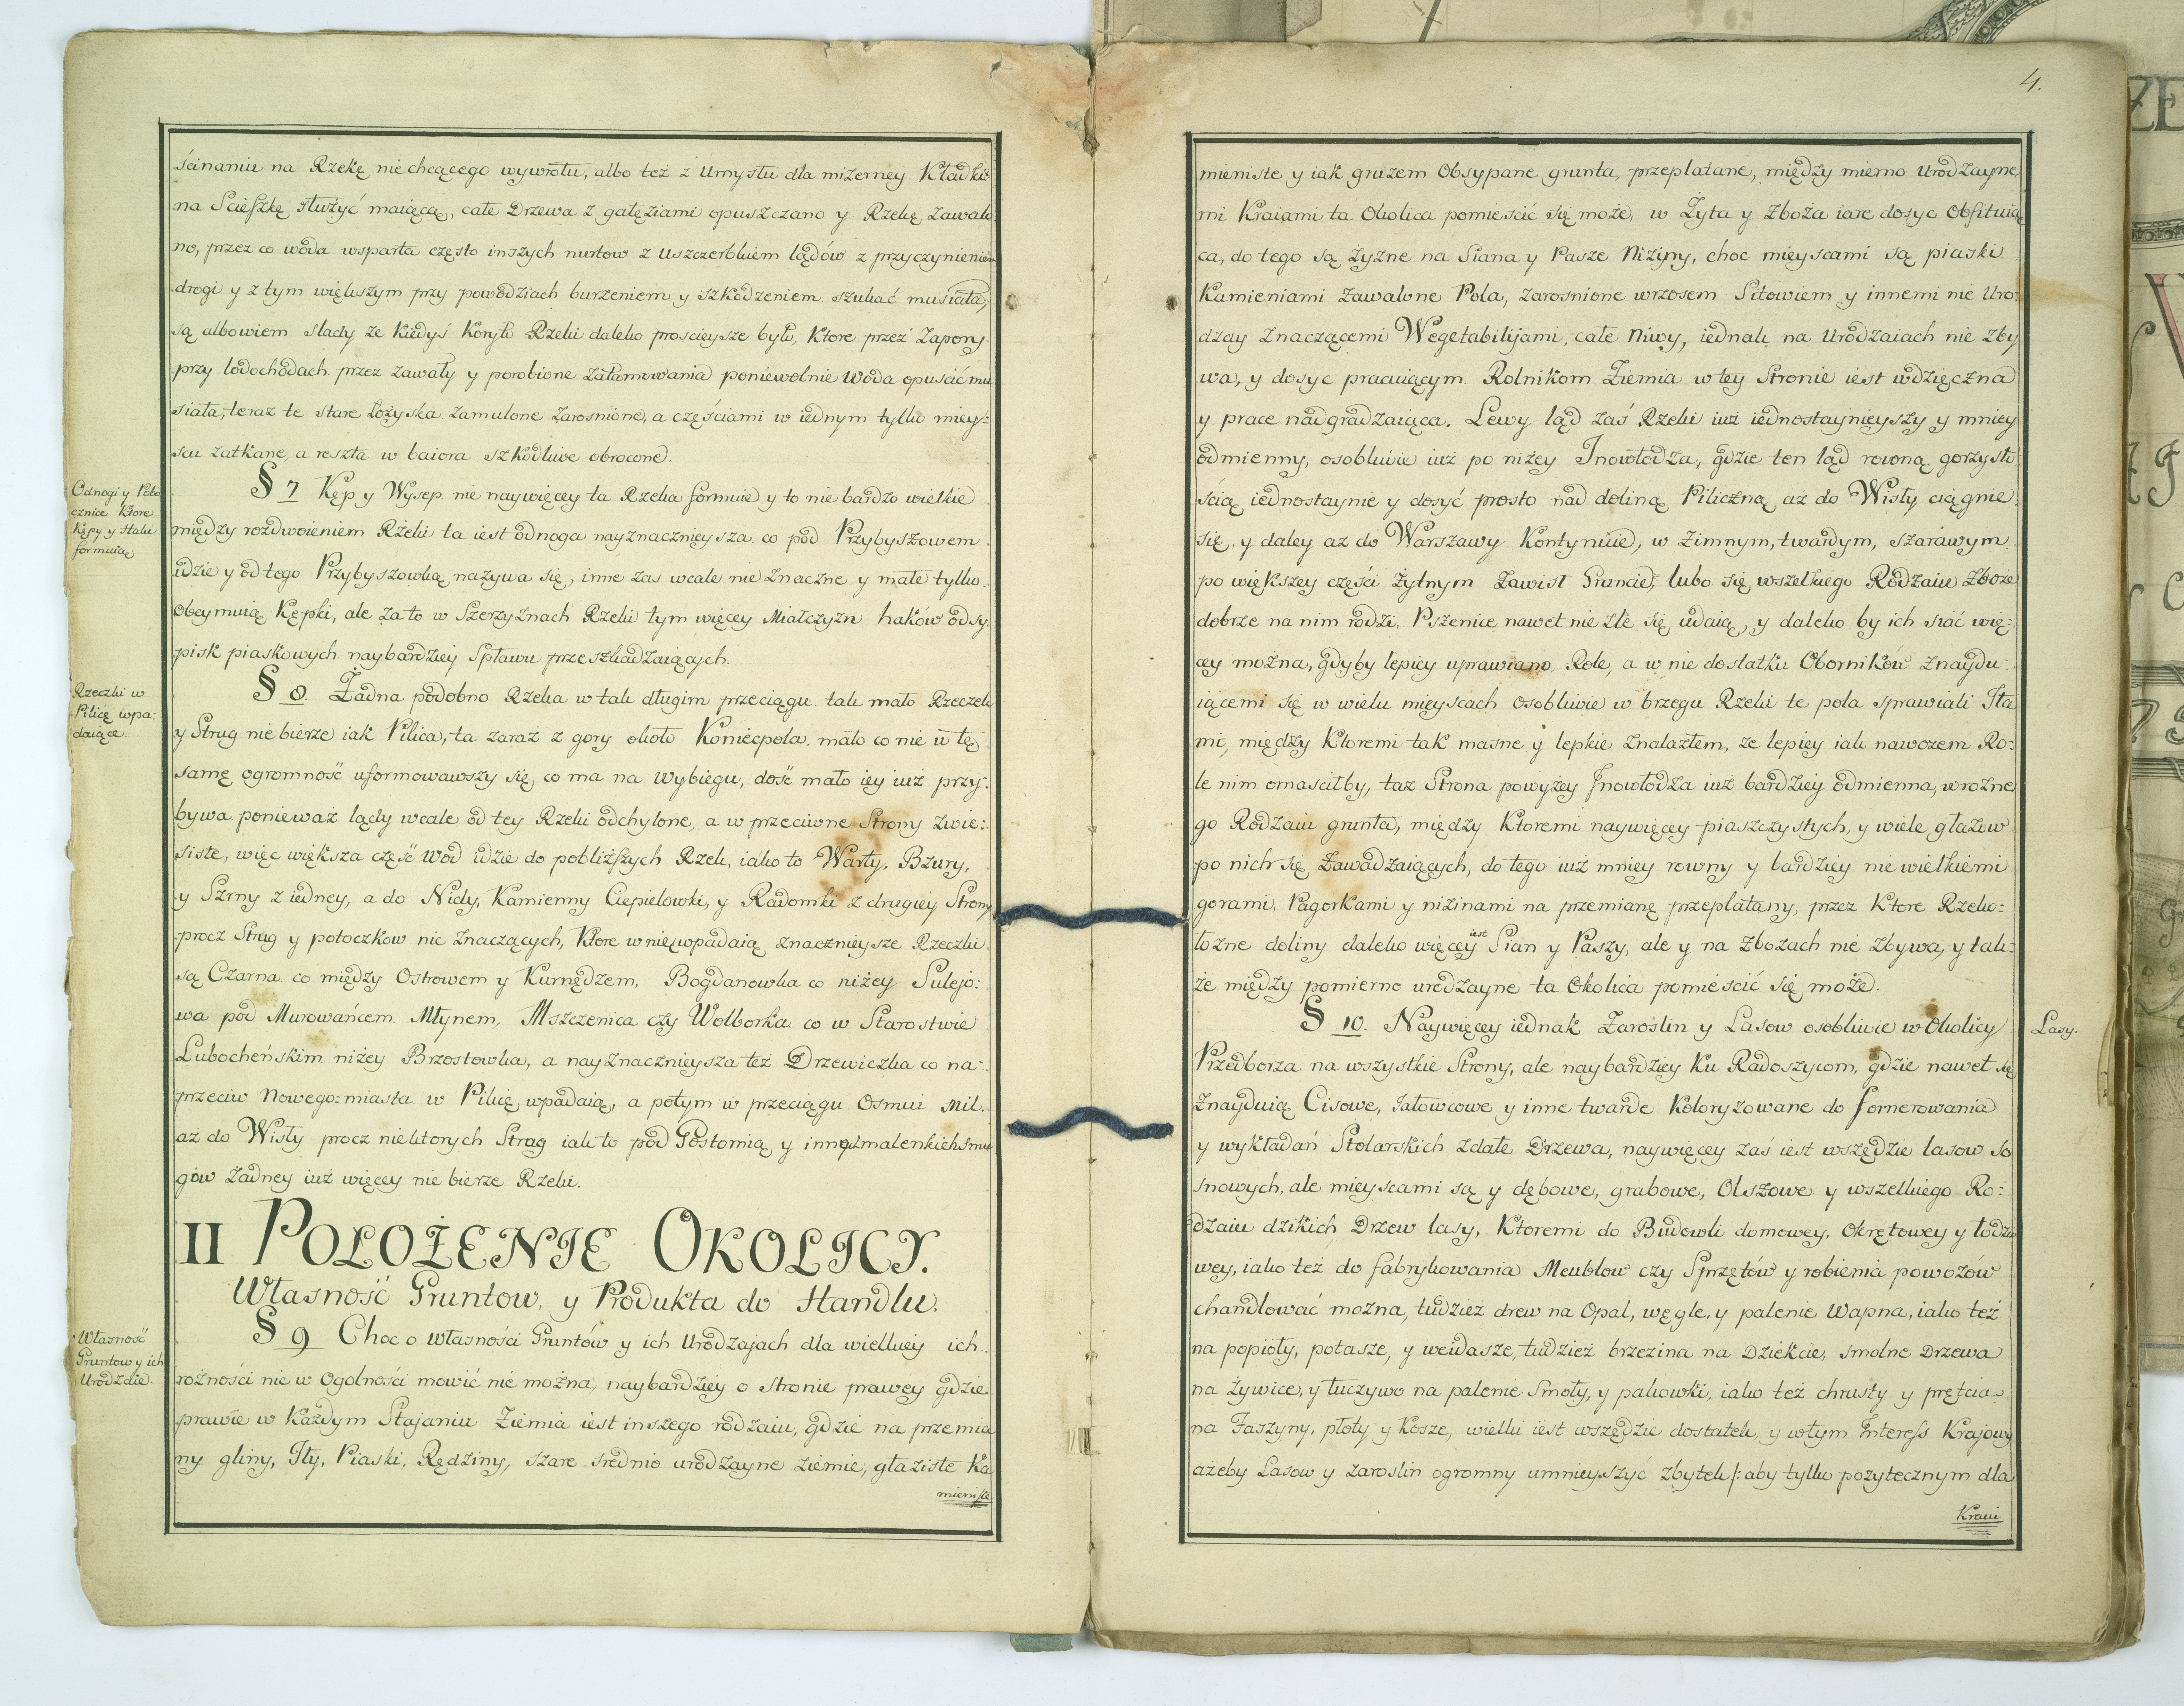 ścinaniu na Rzekę niechcącego wywrotu, albo też z Umysłu dla mizerney Kładki
na Scieszkę służyć maiącą, całe Drzewa z gałęziami opuszczano y Rzekę zawalo
no, przez co woda wsparta często inszych nurtow z uszczerbkiem lądów z przyczynieniem
drogi y z tym większym przy powodziach burzeniem y szkodzeniem szukać musiała,
są albowiem slady że kiedyś Koryto Rzeki daleko prościeysze było, Ktore przez Zapory
przy lodochodach przez zawały y porobione zatamowania poniewolnie Woda opuścić mu
siała; teraz te stare łożyska zamulone zarosnione, a częściami w iednym tylko miey:
scu zatkane, a reszta w baiora szkodliwe obrocone.
Odnogi y Pobo
cznice Ktore
Kępy y Stoki
formuią
§ 7 Kęp y Wysep nie naywięcey ta Rzeka formuie y to nie bardzo wielkie
między rozdwoieniem Rzeki ta iest odnoga nayznacznieysza co pod Przybyszowem
idzie y od tego Przybyszowką nazywa się, inne zas wcale nie znaczne y małe tylko
obeymuią Kępki, ale za to w Szerzyznach Rzeki tym więcey Miałczyzn haków odsy
pisk piaskowych naybardziey Spławu przeszkadzaiących.
Rzeczki w
Pilicę wpa:
daiące.
§ 8. Żadna podobno Rzeka w tak długim przeciągu tak mało Rzeczek
y Strug nie bierze iak Pilica, ta zaraz z gory około Koniecpola mało co nie w tę
samę ogromność uformowawszy się, co ma na Wybiegu, dość mało iey iuż przy:
bywa ponieważ lądy wcale od tey Rzeki odchylone, a w przeciwne Strony zwie:
siste, więc większa część wod idzie do pobliższych Rzek, iako to Warty, Bzury,
y Szrny z iedney, a do Nidy, Kamienny Ciepielowski, y Radomki z drugiey Strony
procz Strug y potoczkow nic znaczących, Ktore w nię wpadaią znacznieysze Rzeczki
są Czarna co między Ostrowem y Kurnędzem, Bogdanowka co niżey Sulejo:
wa pod Murowańcem Młynem, Mszczenica czy Wolborka co w Starostwie
Lubocheńskim niżey Brzostowka, a nayznacznieysza też Drzewiczka co na:
przeciw Nowego=miasta w Pilicę wpadaią, a potym w przeciągu Osmiu Mil
aż do Wisły procz niektorych Strug iak to pod Gostomią y innych malenkich smu
gow żadney iuż więcey nie bierze Rzeki.
II POŁOŻENIE OKOLICY.
Własność Gruntow, y Produkta do Handlu.
Własność
Gruntow y ich
Urodzaie.
§ 9 Choc o własności Gruntów y ich Urodzajach dla wielkiey ich
rożności nic w Ogolności mowić nie można, naybardziey o stronie prawey gdzie
prawie w Każdym Stajaniu Ziemia iest inszego rodzaiu, gdzie na przemia
ny gliny, Iły, Piaski, Rędziny, szare srednio urodzayne ziemie, głaziste Ka
mieniste
4.
mieniste y iak gruzem Obsypane grunta, przeplatane, między mierno Urodzayne
mi Kraiami ta Okolica pomieścić się może, w Żyta y Zboża iare dosyc Obfituią
ca, do tego są żyzne na Siana y Pasze Niziny, choc mieyscami są piaski
Kamieniami zawalone Pola, zarosnione wrzosem Sitowiem y innemi nie Uro:
dzay znaczącemi Wegetabilijami, całe Niwy, iednak na Urodzaiach nie zby
wa, y dosyc pracuiącym Rolnikom Ziemia w tey Stronie iest wdzięczna
y prace nadgradzaiąca. Lewy ląd zaś Rzeki iuż iednostaynieyszy y mniey
odmienny, osobliwie iuż po niżey Inowłodza, gdzie ten ląd rowną gorzysto
ścią iednostaynie y dosyć prosto nad doliną Piliczną aż do Wisły ciągnie
się, y daley aż do Warszawy Kontynuie, w zimnym, twardym, szarawym
po większey części żytnym Zawisł Gruncie, lubo się wszelkiego Rodzaiu Zboże
dobrze na nim rodzi, Pszenice nawet nie źle się udaią, y daleko by ich siać wię:
cey można, gdyby lepiey uprawiano Role, a w nie dostatku Oborników znaydu:
iącemi się w wielu mieyscach osobliwie w brzegu Rzeki te pola sprawiali Iła
mi, między Ktoremi tak masne y lepkie znalazłem, że lepiey iak nawozem Ro:
le nim omasciłby, taż Strona powyżey Inowłodza iuż bardziey odmienna, w rożne
go Rodzaiu grunta, między Ktoremi naywięcey piaszczystych, y wiele głazow
po nich się zawadzaiących, do tego iuż mniey rowny y bardziey nie wielkiemi
gorami, Pagorkami y nizinami na przemianę przeplatany, przez Ktore Rzeko=
łożne doliny daleko więcey iest Sian y Paszy, ale y na Zbożach nie zbywa, y tak:
że między pomierne urodzayne ta Okolica pomieścić się może.
§ 10. Naywięcey iednak Zaroslin y Lasow osobliwie w Okolicy
Lasy.
Przedborza na wszystkie Strony, ale naybardziey Ku Radoszycom, gdzie nawet się
znayduią Cisowe, Jałowcowe y inne twarde Koloryzowane do fornerowania
y wykładań Stolarskich zdałe Drzewa, naywięcey zaś iest wszędzie lasow so
snowych, ale mieyscami są y dębowe, grabowe, Olszowe y wszelkiego Ro:
dzaiu dzikich Drzew lasy, Ktoremi do Budowli domowey, Okrętowey y łodzio
wey, iako też do fabrykowania Meublow czy Sprzętów y robienia powozów
chandlować można, tudzież drew na Opał, węgle, y palenie Wapna, iako też
na popioły, potasze, y weidasze, tudzież brzezina na Dziekcie, smolne Drzewa
na żywice, y łuczywo na palenie Smoły, y pakowki, iako też chrusty y pręcia
na Faszyny, płoty y Kosze, wielki iest wszędzie dostatek, y w tym Interess Krajowy
ażeby Lasow y zaroslin ogromny umnieyszyć zbytek /: aby tylko pożytecznym dla
Kraiu